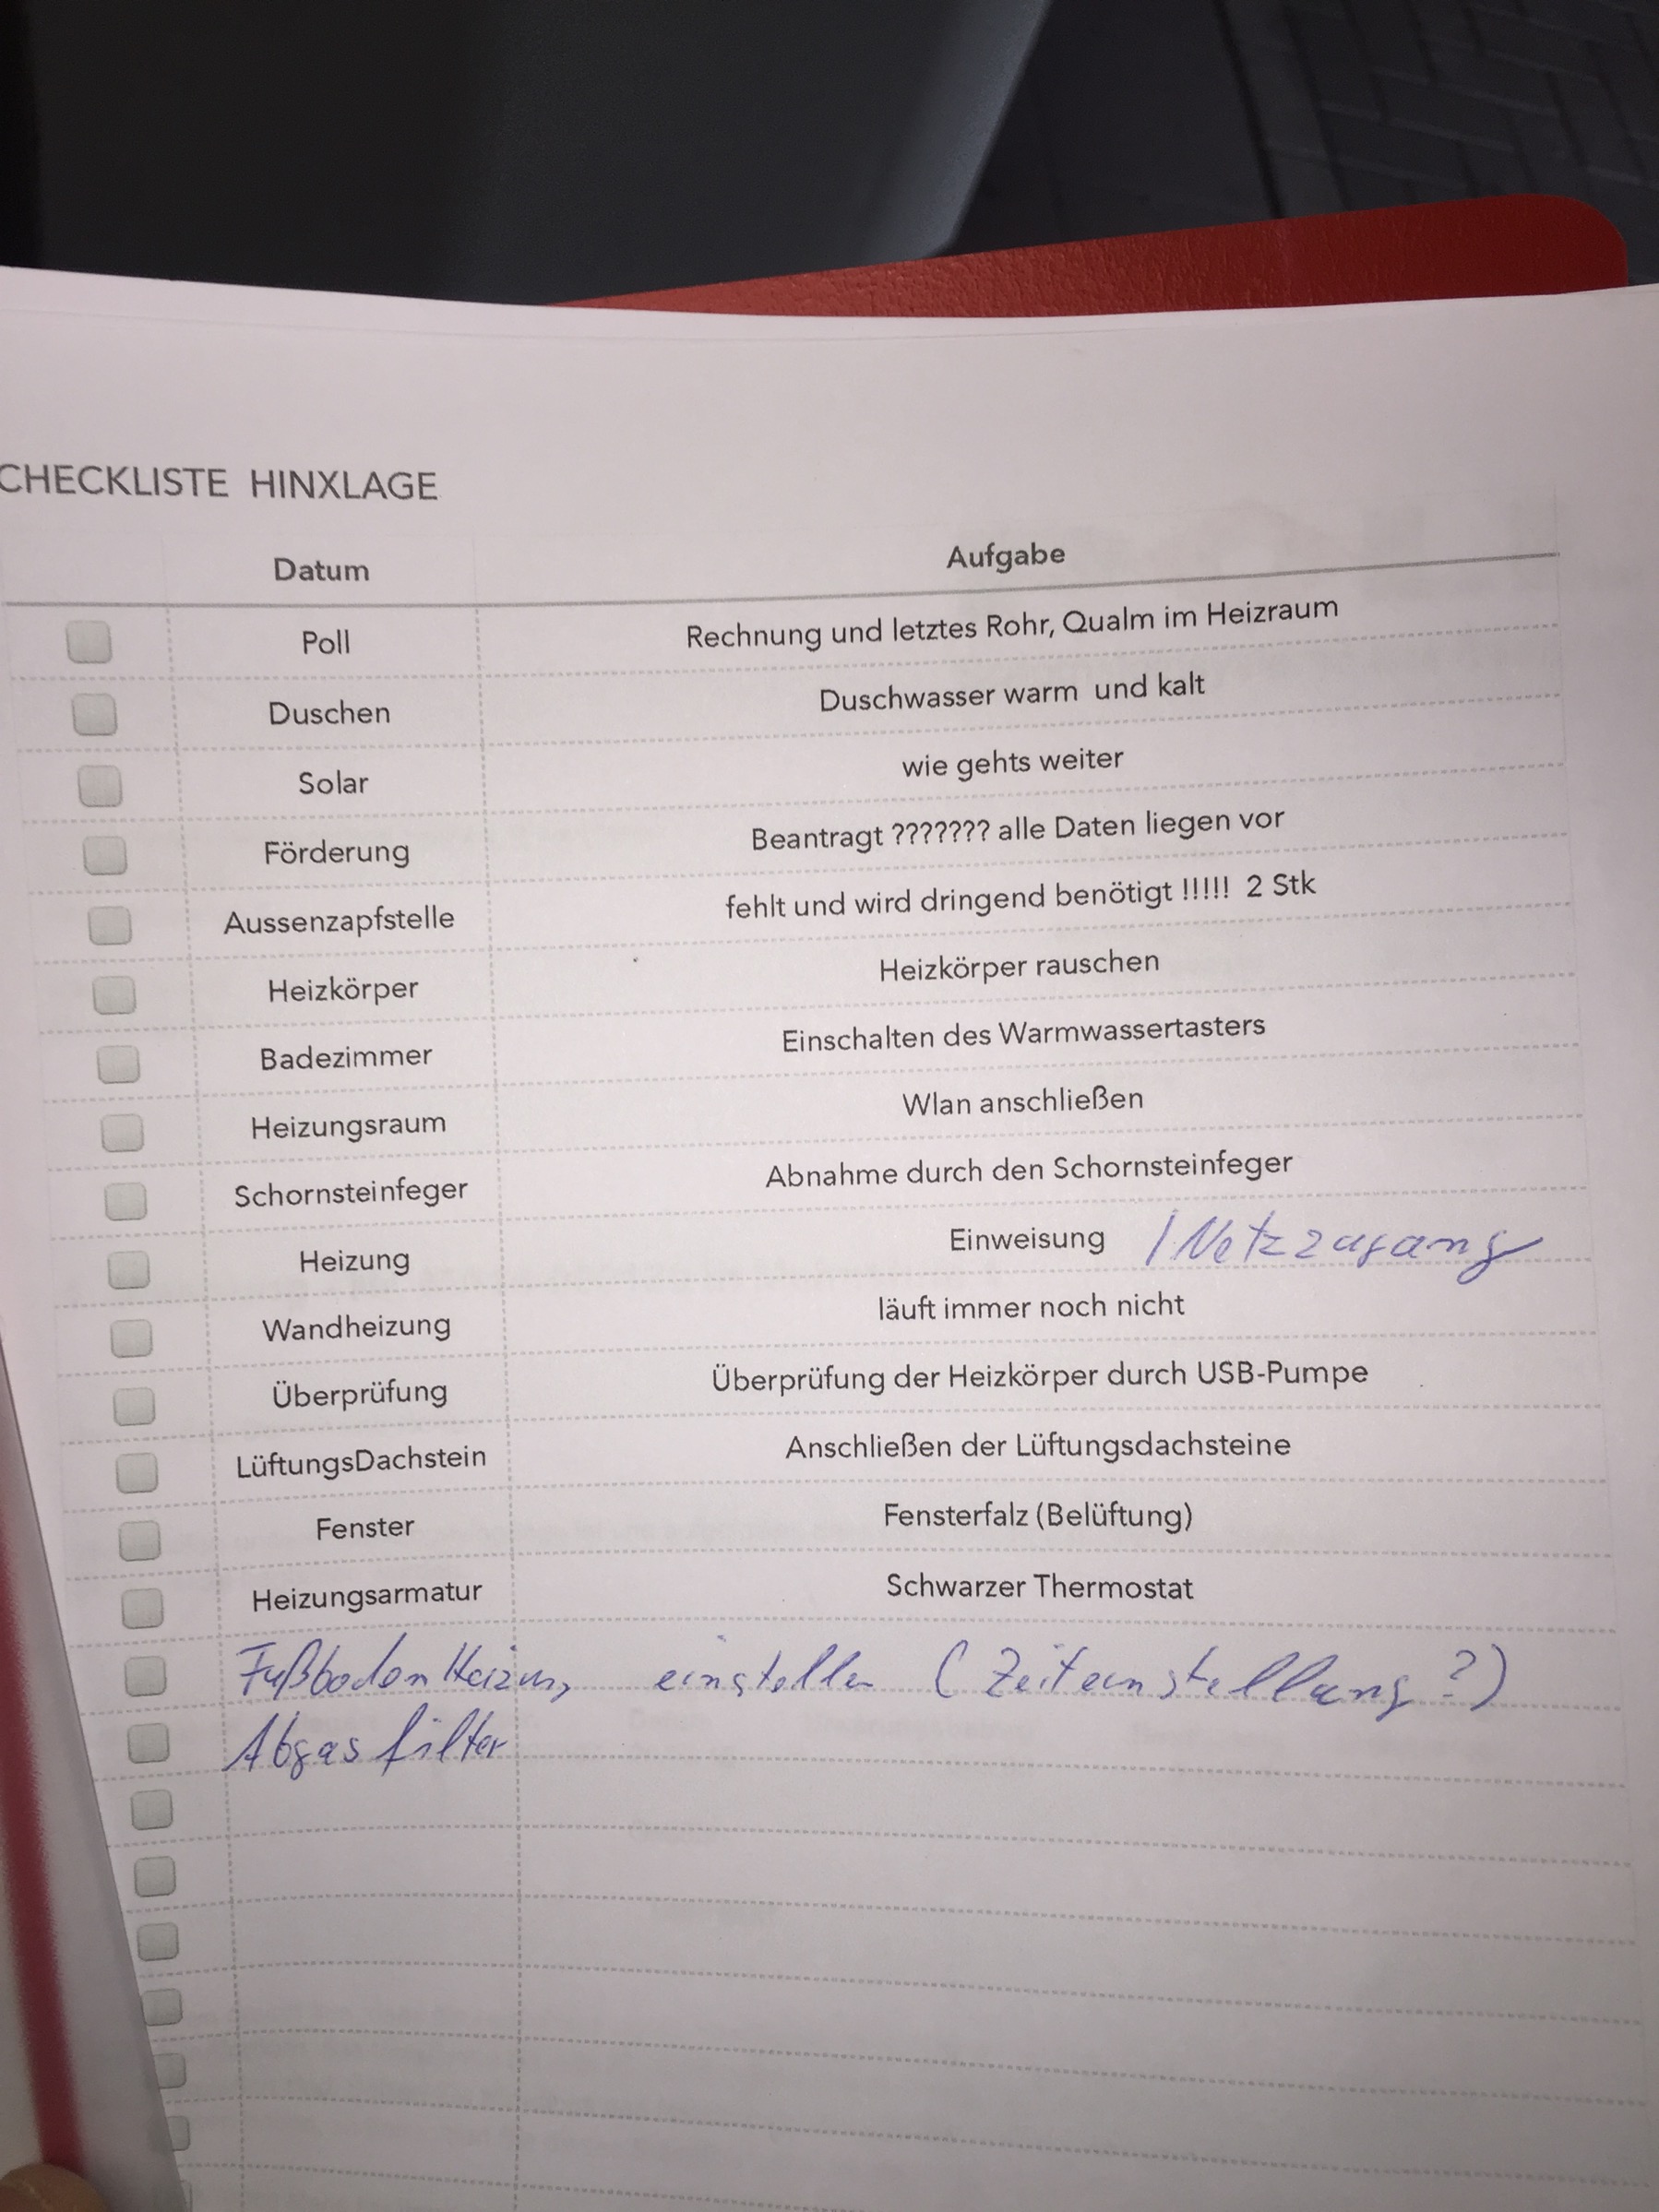 CHECKLISTE HINXLAGE
Datum Aufgabe
Poll Rechnung und letztes Rohr, Qualm im Heizraum
Duschen Duschwasser warm und kalt
Solar wie gehts weiter
Förderung Beantragt ??????? alle Daten liegen vor
Aussenzapfstelle fehlt und wird dringend benötigt !!!!! 2 Stk
Heizkörper Heizkörper rauschen
Badezimmer Einschalten des Warmwassertasters
Heizungsraum Wlan anschließen
Schornsteinfeger Abnahme durch den Schornsteinfeger
Heizung Einweisung / Netzzugang
Wandheizung läuft immer noch nicht
Überprüfung Überprüfung der Heizkörper durch USB-Pumpe
LüftungsDachstein Anschließen der Lüftungsdachsteine
Fenster Fensterfalz (Belüftung)
Heizungsarmatur Schwarzer Thermostat
Fußboden Heizung einstellen (Zeiteinstellung?)
Abgasfilter